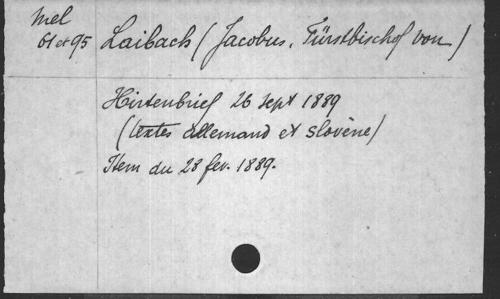 Mel
61 et 95
Laibach (Jacobus, Fürstbischof von)
Hirtenbrief 26 sept 1889
(textes allemand et slovène)
Item du 28 fev. 1889.